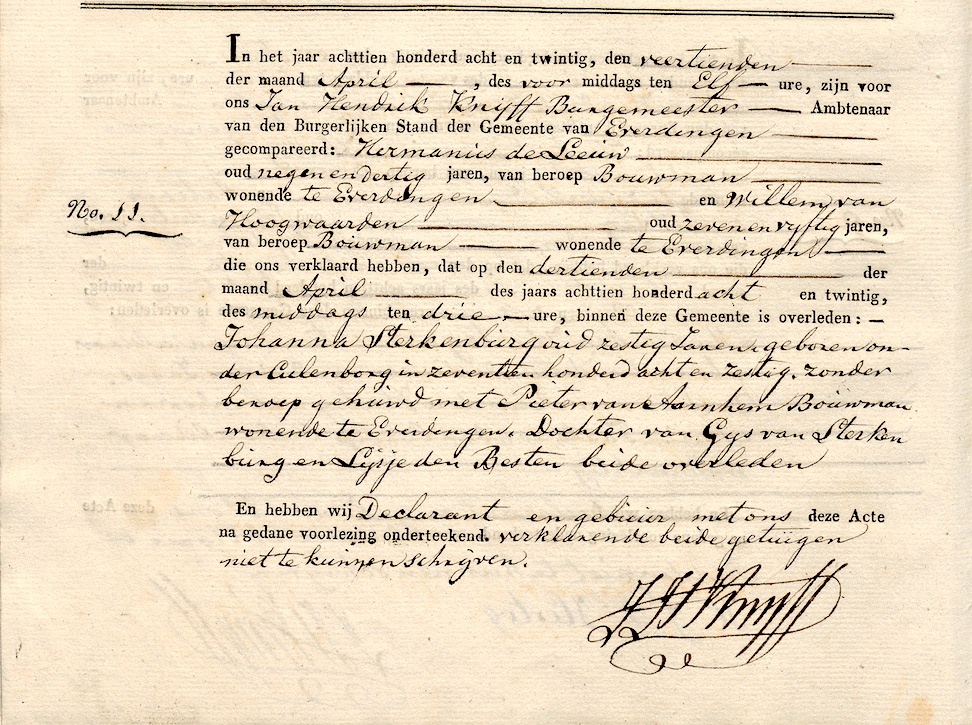 In het jaar achttien honderd acht en twintig, den veertienden
der maand April, des voor middags ten Elf ure, zijn voor
ons Jan Hendrik Knijff Burgemeester Ambtenaar
van den Burgerlijken Stand der Gemeente van Everdingen
gecompareerd: Hermanus de Leeuw
oud negen en dertig jaren, van beroep Bouwman
wonende te Everdingen en Willem van
No. 11.
Hoogwaarden oud zeven en vyftig jaren,
van beroep Bouwman wonende te Everdingen
die ons verklaard hebben, dat op den dertienden der
maand April des jaars achttien honderd acht en twintig,
des middags ten drie ure, binnen deze Gemeente is overleden: —
Johanna Sterkenburg oud zestig Jaren, geboren on-
der Culenborg in zeventien honderd acht en zestig. zonder
beroep gehuwd met Pieter van Aarnhem Bouwman
wonende te Everdingen. Dochter van Gys van Sterken
burg en Lijsje den Besten beide overleden
En hebben wij Declarant en gebuur met ons deze Acte
na gedane voorlezing onderteekend. verklarende beide getuigen
niet te kunnen schryven.
J H Knijff